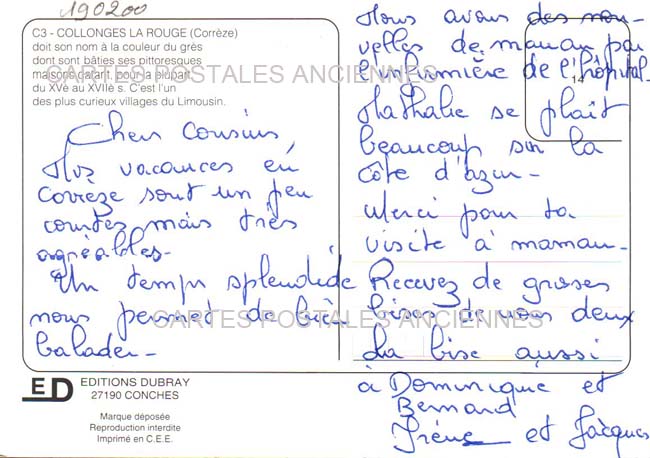 190200
C3 - COLLONGES LA ROUGE (Corrèze)
doit son nom à la couleur du grès
dont sont bâties ses pittoresques
maisons datant, pour la plupart,
du XVè au XVIIè s. C'est l'un
des plus curieux villages du Limousin.
CARTES POSTALES ANCIENNES
Chers Cousins
Nos vacances en
Corrèze sont un peu
courtes mais très
agréables-
Un temps splendide
nous permet de bien
balader-
Nous avons des nou-
velles de maman par
l'infirmière de l'hôpital-
14
Nathalie se plaît
beaucoup sur la
Côte d'azur-
Merci pour ta
visite à maman-
Recevez de grosses
bises de nous deux
La bise aussi
à Dominique et
Bernard
Irène et Jacques
CARTES POSTALES ANCIENNES
ED
EDITIONS DUBRAY
27190 CONCHES
Marque déposée
Reproduction interdite
Imprimé en C.E.E.